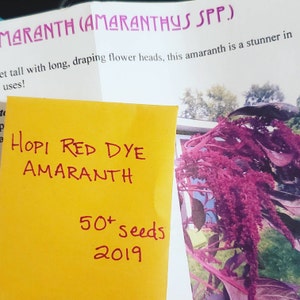 MARANTH (AMARANTHUS SPP.)
et tall with long, draping flower heads, this amaranth is a stunner in
uses!
HOPI RED DYE
AMARANTH
50+ seeds
2019